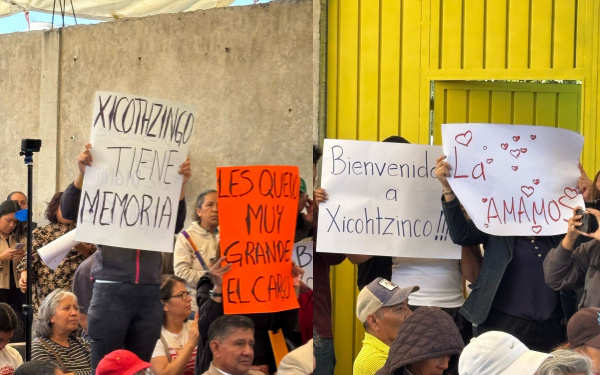 XICOTHZINGO
TIENE
MEMORIA
LES QUEDA
MUY
GRANDE
EL CARGO
Bienvenido
a
Xicohtzinco!!!
La
AMAMOS